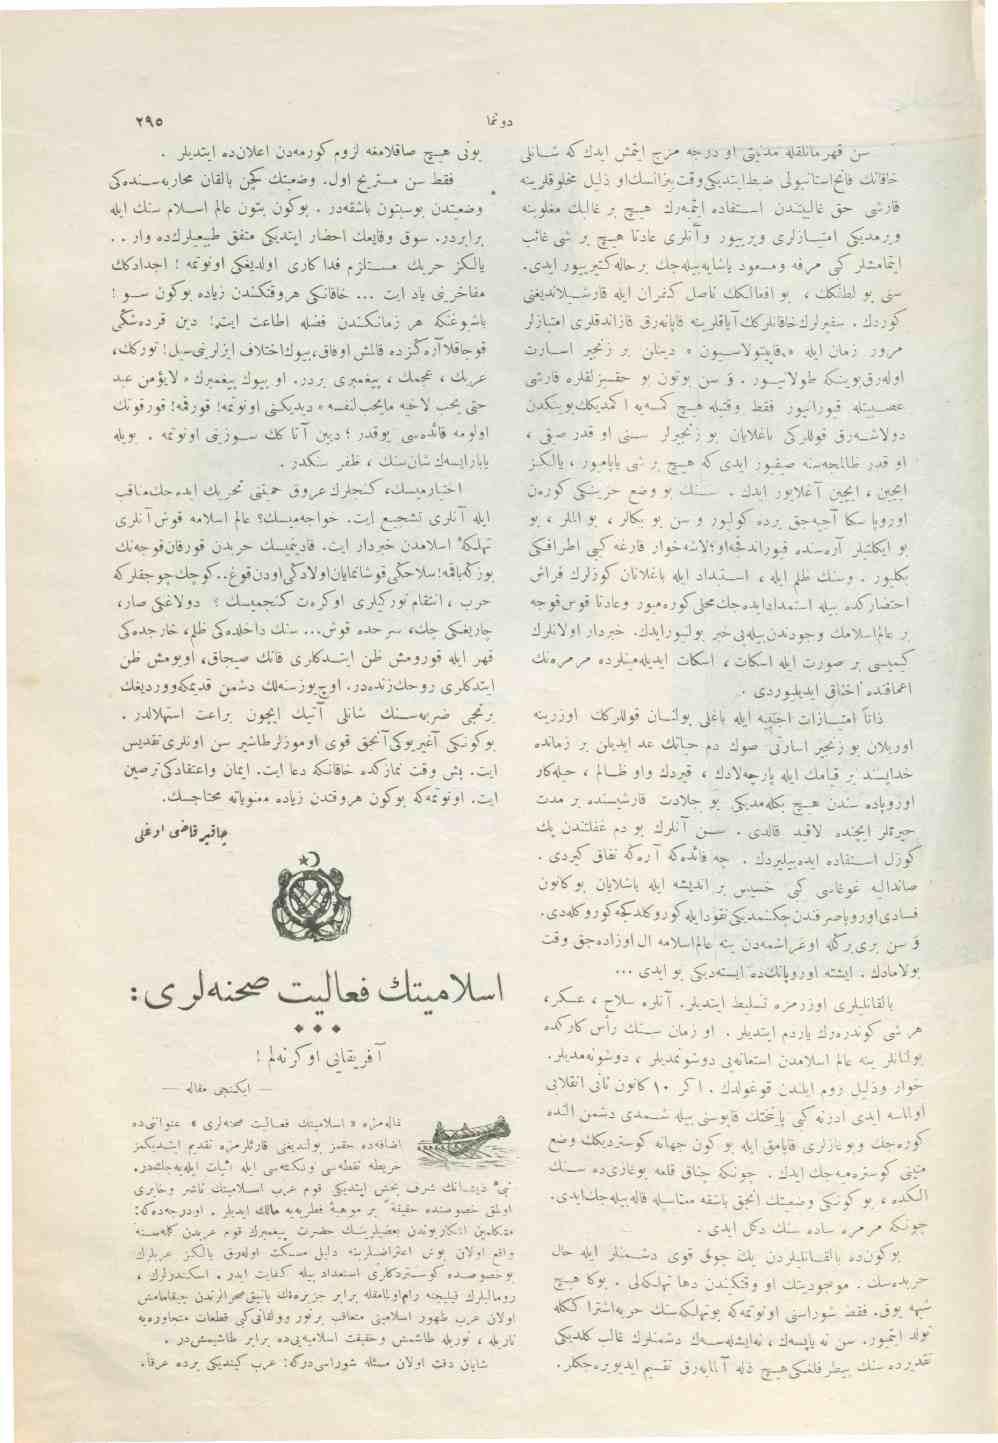 دوننما
٢٩٥
سن قهرمانلقله مدنیتی او درجه مزج ایتمش ایدك كه شانلی
خاقانك فاتح استانبولی ضبط ایتدیكی وقت بیزانسك او ذلیل مخلوقلرینه
قارشی حق غالبیتندن استفاده ایتمیه رك هیچ بر غالبك مغلوبنه
ویرمدیكی امتیازلری ویرییور وآنلری عادتا هیچ بر شی غائب
ایتمامشلر كبی مرفه ومسعود یاشایه بیله جك بر حاله كتیرییور ایدی.
سنی بو لطفكك ، بو افعالكك ناصل كفران ایله قارشیلاندیغنی
كوردك . سفیرلرك خاقانلركك آیاقلرینه قاپانه رق قازاندقلری امتیازلر
مرور زمان ایله « قاپیتولاسیون » دینلن بر زنجیر اسارت
اوله رق بوینكه طولانیور . و سن بوتون بو حقسزلقلره قارشی
عصبیتله قیورانیور فقط وقتیله هیچ كمسه یه اكمدیكك بوینكدن
دولاشه رق قوللركی باغلایان بو زنجیرلر سنی او قدر صیقی ،
او قدر ظالمجه سنه صیقیور ایدی كه هیچ بر شی یاپامیور ، یالكز
ایچین ، ایچین آغلایور ایدك . سنك بو وضع حزینكی كورن
اوروپا سكا آجیه جق یرده كولیور و سن بو بكالر ، بو الملر ، بو
بو ایكلتیلر آره سنده قیوراندقجه او؛ لاشه خوار قارغه كبی اطرافكی
بكلیور . وسنك ظلم ایله ، استبداد ایله باغلانان كوزلرك فراش
احتضاركده بیله استمداد ایده جك محلی كوره میور وعادتا قوس قوجه
بر عالم اسلامك وجودندن بیله بی خبر بولنیور ایدك. خبردار اولانلرك
كیمیسی بر صورت ایله اسكات ، اسكات ایدیله مینلرده مرمره نك
اعماقنده اخناق ایدیلیوردی .
ذاتاً امتیازات اجنبیه ایله باغلی بولنان قوللركك اوزرینه
اوریلان بو زنجیر اسارتی صوك دم حیاتك عد ایدیلن بر زمانده
خداپسند بر قیامك ایله پارچه لادك ، قیردك واو ظالم ، حیله كار
اوروپاده سندن هیچ بكله مدیكی بو جلادت قارشیسنده بر مدت
حیرتلر ایچنده لاقید قالدی . سن آنلرك بو دم غفلتندن پك
كوزل استفاده ایده بیلیردك . چه فائده كه آره كه نفاق كیردی .
صاندالیه غوغاسی كبی خسیس بر اندیشه ایله باشلایان بو كانون
فسادی اوروپا صرفندن چكنمدیكی نقودایله كوروكلدكجه كوروكله دی.
و سن بری بركله اوغراشمه دن ینه عالم اسلامه ال اوزاده جق وقت
بولامادك . ایشته اوروپانكده ایسته دیكی بو ایدی ...
بالقانلیلری اوزرمزه تسلیط ایتدیلر. آنلره سلاح ، عسكر،
هر شی كوندره رك یاردم ایتدیلر . او زمان سنك رأس كاركده
بولنانلر ینه عالم اسلامدن استعانه یی دوشونمدیلر ، دوشونه مدیلر.
خوار وذلیل روم ایلندن قوغولدك . اكر ١٠ كانون ثانی انقلابی
اولماسه ایدی ادرنه كبی پایتختك قاپوسنی بیله شمدی دشمن النده
كوره جك وبوغازلری قاپامق ایله بو كون جهانه كوستردیكك وضع
متینی كوستره میه جك ایدك . چونكه چناق قلعه بوغازی ده سنك
الكده ، بو كونكی وضعیتك انجق باشقه مقابله قاله بیله جك ایدی.
چونكه مرمره ساده سنك دكل ایدی .
بوكون ده بالقانلیلردن پك چوق قوی دشمنلر ایله حال
حربده سك . موجودیتك او وقتكندن دها تهلكه لی . بوكا هیچ
شبهه یوق. فقط شوراسنی اونوتمه كه بو تهلكه سنك حربه اشتراككله
تولد ایتمیور. سن نه یاپسه ك ، نه ایشله سه ك دشمنلرك غالب كلدیكی
تقدیرده سنك بیطرفلغكی هیچ ذله آلمایه رق تقسیم ایدیویره جكلر.
بونی هیچ صاقلامغه لزوم كورمه دن اعلان ده ایتدیلر .
فقط سن مستریح اول. وضعیتك كچن بالقان محاربه سنده كی
وضعیتدن بوسبتون باشقه در . بوكون بتون عالم اسلام سنك ایله
برابردر. سوق وقایعك احضار ایتدیكی متفق طبیعیلرك ده وار . .
یالكز حربك مستلزم فداكاری اولدیغكی اونوتمه ! اجدادكك
مفاخرینی یاد ایت ... خاقانكی هر وقتكندن زیاده بوكون سو !
باشبوغكه هر زمانكندن فضله اطاعت ایت! دین قرده شكلی
قوجاقلا آره كزده قالمش اوفاق، بیوك اختلاف ایزلرینی سیل! توركك،
عربك ، عجمك ، پیغمبری بردر. او بیوك پیغمبرك « لایؤمن عبد
حتی یحب لاخیه مایحب لنفسه » دیدیكنی اونوتمه! قورقمه! قورقونك
اولومه فائده سی یوقدر ؛ دیین آتا كك سوزینی اونوتمه . بویله
یاپارایسه ك شان سنك ، ظفر سنكدر .
اختیارمیسك، كنجلرك عروق حمیتنی تحریك ایده جك مناقب
ایله آنلری تشجیع ایت. خواجه میسك؟ عالم اسلامه قوش آنلری
تهلكۀ اسلامدن خبردار ایت. قادینمیسك حربدن قورقان قوجه نك
یوزكه باقمه! سلاحكی قوشانمایان اولادكی اودن قوغ.. كوچك چوجقلركه
حرب ، انتقام توركیلری اوكرەت كنجمیسك ؟ دولاغكی صار،
چاریغكی چك، سرحده قوش... سنك داخلده كی ظلم، خارجده كی
قهر ایله قورومش ظن ایتدكلری قانك صیجاق، اویومش ظن
ایتدكلری روحك زنده در. اوچ یوز سنه لك دشمن قدیمكه ووردیغك
برنجی ضربه سنك شانلی آتیك ایچون براعت استهلالدر .
بوكونكی آغیر یوكی آنجق قوی اوموزلر طاشیر سن اونلری تقدیس
ایت. بش وقت نمازكده خاقانكه دعا ایت. ایمان واعتقادكی ترصین
ایت. اونوتمه كه بوكون هر وقتدن زیاده معنویاته محتاجسك.
چاقیر قاضی اوغلی
اسلامیتك فعالیت صحنه لری :
آفریقایی اوكرنه لم !
— ایكنجی مقاله —
مقاله مزه « اسلامیتك فعالیت صحنه لری » عنوانی ده
اضافه ده حقمز بولندیغنی قارئلرمزه تقدیم ایتدیكمز
خریطه نقطه سی ونكته سی ایله اثبات ایله یه جكدر.
نبیء ذیشانك شرف بخش ایتدیكی قوم عرب اسلامیتك ناشر وخابری
اولمق خصوصنده حقیقةً بر موهبۀ فطریه یه مالك ایدیلر . اودرجه ده كه:
متكلمین انكاریوندن بعضیلرینك حضرت پیغمبرك قوم عربدن كلمه سنه
واقع اولان بوش اعتراضلرینه دلیل مسكت اوله رق یالكز عربلرك
بوخصوصده كوستردكلری استعداد بیله كفایت ایدر . اسكندرلرك ،
رومالیلرك قیلیجنه رام اولمامقله برابر جزیره نك یانیق صحرالرندن چیقمامش
اولان عرب ظهور اسلامیتی متعاقب برنور وولقانی كبی قطعات متجاوره یه
ناریله ، نوریله طاشمش وحقیقت اسلامیه یی ده برابر طاشیمش در .
شایان دقت اولان مسئله شوراسی دركه: عرب كیتدیكی یرده عرفا.